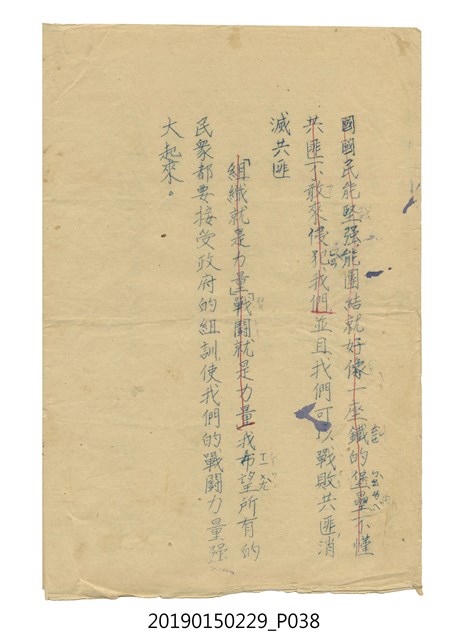 國國民能堅強能團結就好像一座鐵的堡壘不僅
共匪不敢來侵犯我們並且我們可以戰敗共匪消
滅共匪
「組織就是力量」「戰鬪就是力量」我希望所有的
民衆都要接受政府的組訓使我們的戰鬪力量強
大起來。
20190150229_P038